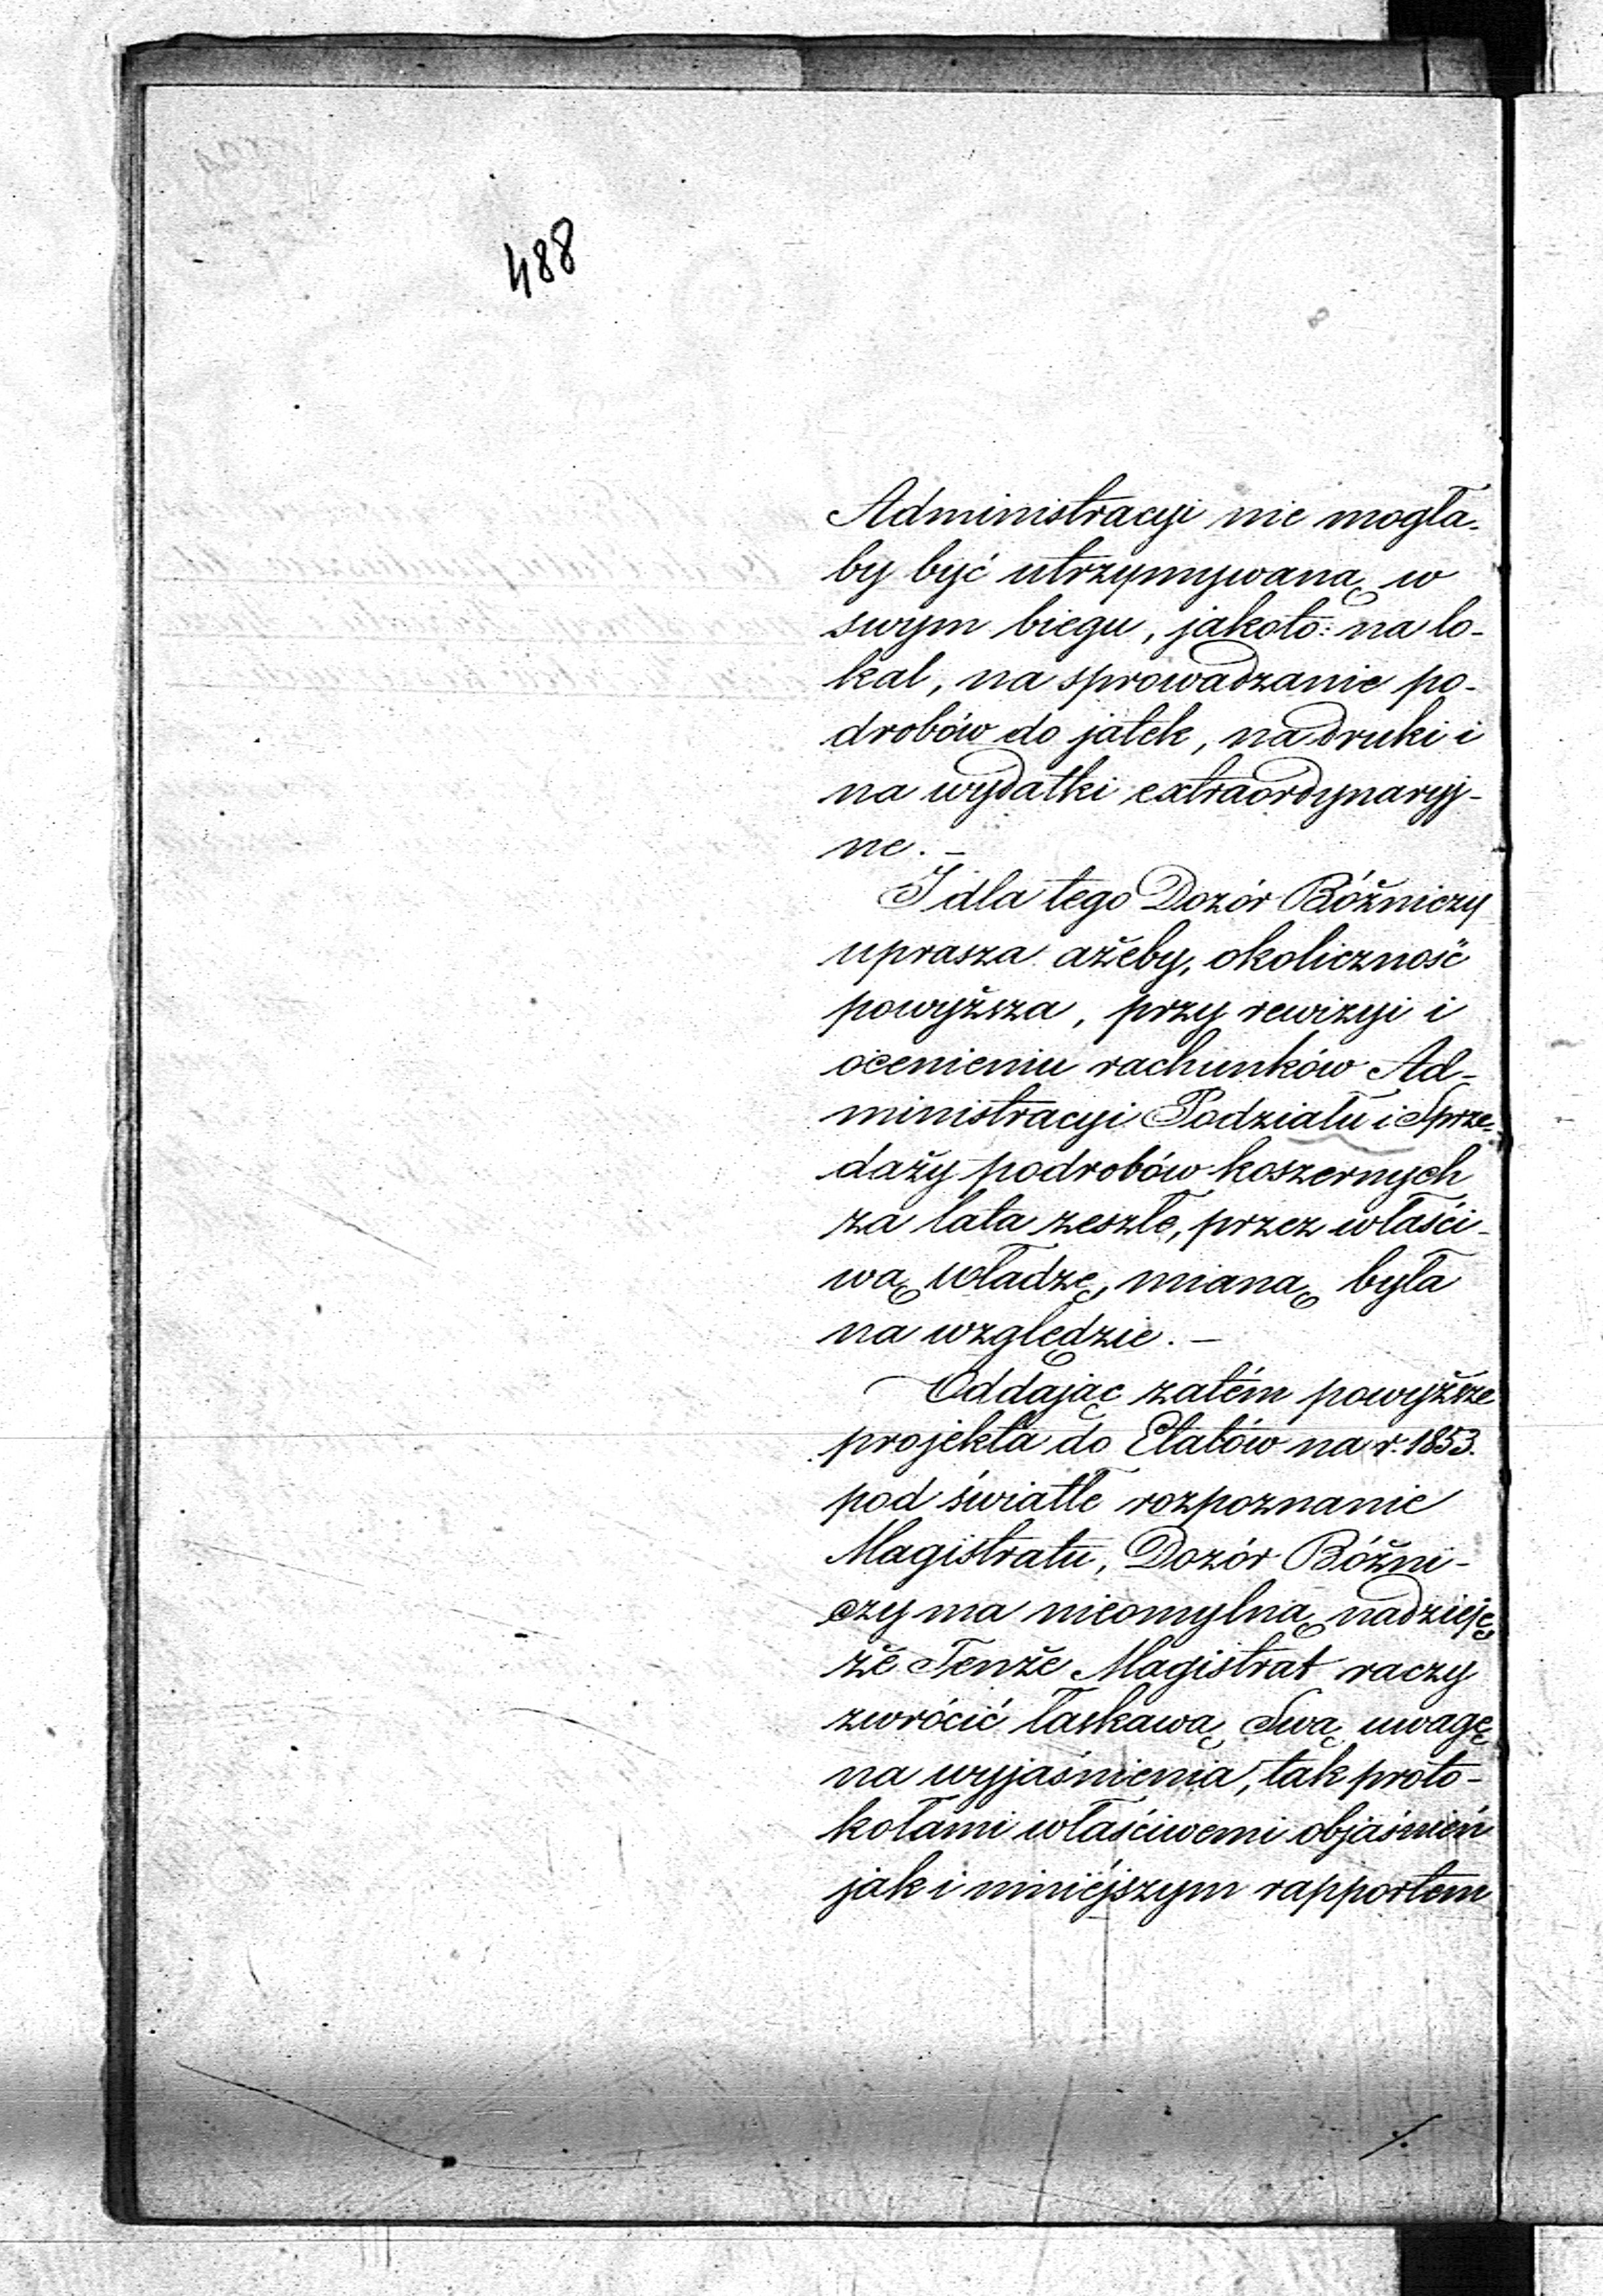 488
Administracyi nie mogła-
by być utrzymywaną w
swym biegu, jakoto: na lo-
kal, na sprowadzanie po-
drobów do jatek, na druki i
na wydatki extraordynaryj-
ne. –
I dla tego Dozór Bóżniczy
uprasza ażeby, okoliczność
powyższa, przy rewizyi i
ocenieniu rachunków Ad-
ministracyi Podziału i Sprze-
daży podrobów koszernych
za lata zeszłe, przez właści-
wą władzę, mianą była
na względzie. –
Oddając zatém powyższe
projekta do Etatów na r. 1853.
pod światłe rozpoznanie
Magistratu, Dozór Bóżni-
czy ma nieomylną nadzieję
że Tenże Magistrat raczy
zwrócić łaskawą Swą uwagę
na wyjaśnienia, tak proto-
kołami właściwemi objaśnień
jak i niniéjszym rapportem
./.